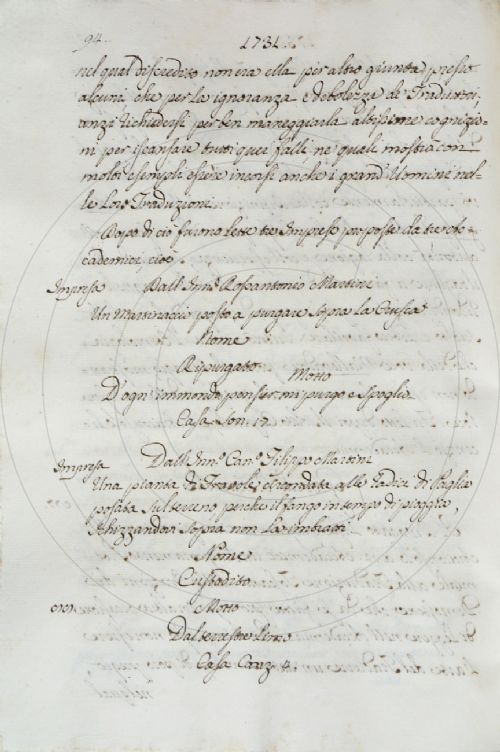 94. 1731.
nel qual discredito non era ella per altro giunta presso
alcuni che per la ignoranza, e debolezza de Traduttori,
anzi richiedersi per ben maneggiarla altissime cognizio-
ni per iscansare tutti quei falli, ne quali mostrò con
molti esempli essere incorsi anche i grand'Uomini nel-
le loro Traduzioni.
Dopo di ciò furono lette tre Imprese proposte da tre Ac-
cademici, cioè
Impresa Dall'Inn.º Rossantonio Martini
Un Martinacci posto a purgare sopra la Crusca
Nome
Ripurgato
Motto
D'ogn'immondo pensier mi purgo e spoglio
Casa Son. 17.
Impresa Dall'Inn.º Can.º Filippo Martini
Una pianta di Fravole circondata alle radici di Paglia
posata sul terreno perche il fango in tempo di pioggia,
schizzandovi sopra non la imbratti
Nome
Custodito
Motto
Dal terrestre limo
Casa Canz. 4.